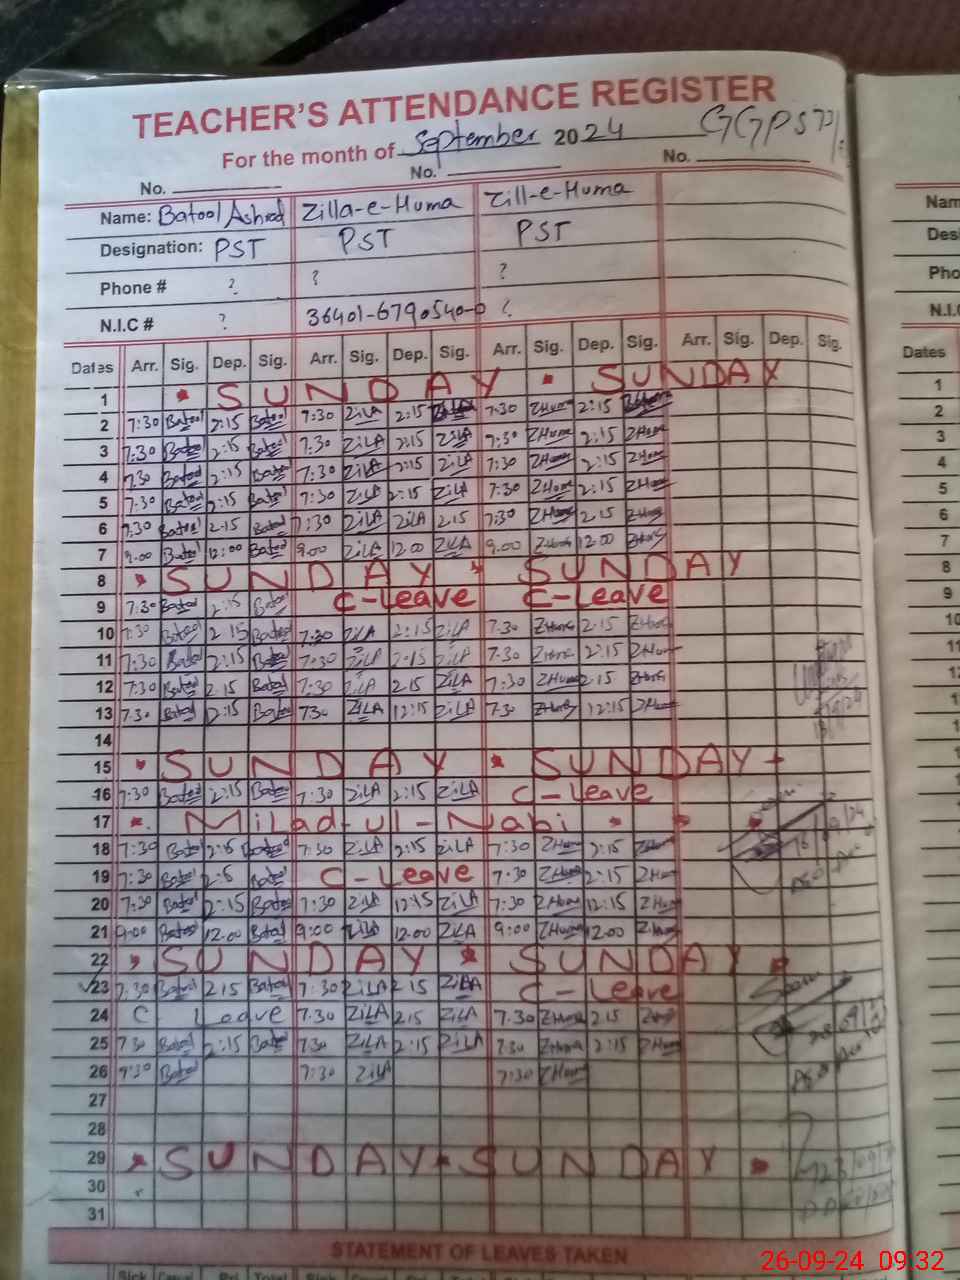 TEACHER'S ATTENDANCE REGISTER
For the month of September 2024
No. No. No.
Name: Batool Ashraf Zilla-e-Huma Zill-e-Huma
Designation: PST PST PST
Phone # ? ? ?
N.I.C # ? 36401-6790540-0 ?
Dates Arr. Sig. Dep. Sig. Arr. Sig. Dep. Sig. Arr. Sig. Dep. Sig. Arr. Sig. Dep. Sig.
1 SUNDAY SUNDAY
2 7:30 Batool 2:15 Batool 7:30 ZiLA 2:15 7:30 ZHuma 2:15
3 7:30 Batool 2:15 Batool 7:30 ZiLA 2:15 ZiLA 7:30 ZHuma 2:15 ZHuma
4 7:30 Batool 2:15 Batool 7:30 ZiLA 2:15 ZiLA 7:30 ZHuma 2:15 ZHuma
5 7:30 Batool 2:15 Batool 7:30 ZiLA 2:15 ZiLA 7:30 ZHuma 2:15 ZHuma
6 7:30 Batool 2:15 Batool 7:30 ZiLA ZiLA 2.15 7:30 ZHuma 2.15 ZHuma
7 9.00 Batool 12:00 Batool 9.00 ZiLA 12.00 ZiLA 9.00 ZHuma 12.00 ZHuma
8 SUNDAY SUNDAY
9 7:30 Batool 2:15 Batool C-Leave C-Leave
10 7:30 Batool 2:15 Batool 7:30 ZiLA 2:15 ZiLA 7:30 ZHuma 2:15 ZHuma
11 7:30 Batool 2:15 Batool 7:30 ZiLA 2:15 ZiLA 7:30 ZHuma 2:15 ZHuma
12 7:30 Batool 2.15 Batool 7:30 ZiLA 2.15 ZiLA 7:30 ZHuma 2:15 ZHuma
13 7.30 Batool 12:15 Batool 730 ZiLA 12:15 ZiLA 7:30 ZHuma 12:15 ZHuma
14
15 SUNDAY SUNDAY
16 7:30 Batool 2:15 Batool 7:30 ZiLA 2:15 ZiLA C-Leave
17 Milad-ul-Nabi
18 7:30 Batool 2:15 Batool 7:30 ZiLA 2:15 ZiLA 7:30 ZHuma 2:15 ZHuma
19 7:30 Batool Batool C-Leave 7:30 ZHuma 2:15 ZHuma
20 7:30 Batool 2:15 Batool 7:30 ZiLA 12:15 ZiLA 7:30 ZHuma 12:15 ZHuma
21 9:00 Batool 12.00 Batool 9:00 ZiLA 12.00 ZiLA 9:00 ZHuma 12.00 ZHuma
22 SUNDAY SUNDAY
23 7:30 Batool 2.15 Batool 7:30 ZiLA 2:15 ZiLA C-Leave
24 C Leave 7.30 ZiLA 2.15 ZiLA 7.30 ZHuma 2.15 ZHuma
25 7:30 Batool 2:15 Batool 730 ZiLA 2:15 ZiLA 7:30 ZHuma 2:15 ZHuma
26 7:30 Batool 7:30 ZiLA 7:30 ZHuma
27
28
29 SUNDAY SUNDAY
30
31
STATEMENT OF LEAVES TAKEN
Dates
1
2
3
4
5
6
7
8
9
10
26-09-24 09:32